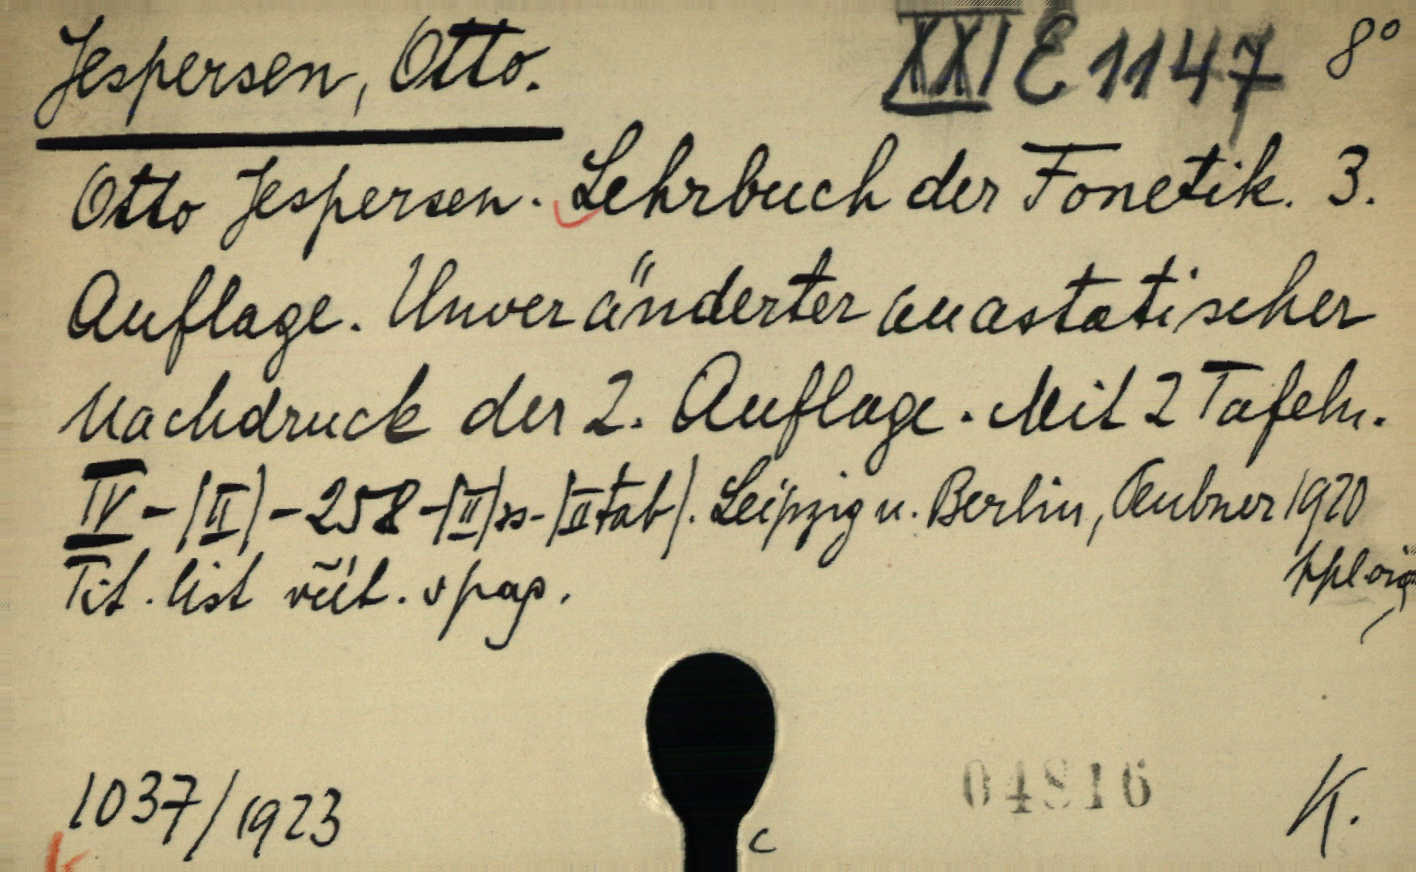 Jespersen, Otto. XXI E 1147 8°
Otto Jespersen. Lehrbuch der Fonetik. 3.
Auflage. Unveränderter anastatischer
Nachdruck der 2. Auflage. Mit 2 Tafeln.
IV-(II)-258-(II)ss-(II tab). Leipzig u. Berlin, Teubner 1920
Tit. list
1037/1923
04816
K.
c